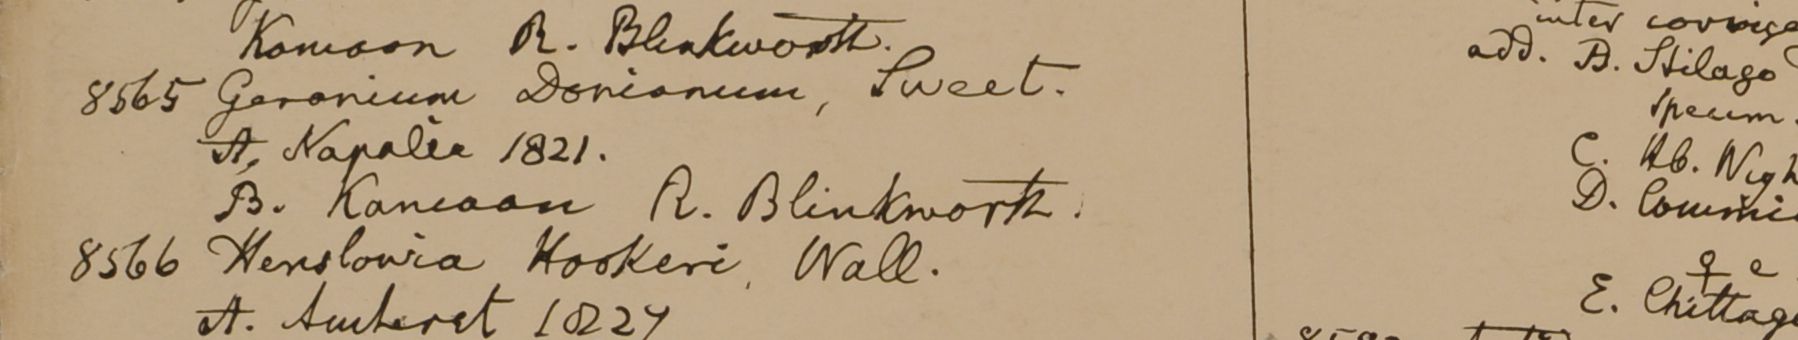 Kamaon R. Blinkworth.
8565 Geranium Donianum, Sweet.
A, Napalia 1821.
B. Kamaon R. Blinkworth.
8566 Henslowia Hookeri, Wall.
A. Amherst 1827
inter
add. B. Stilago
specim.
C. Hb. Wigh
D. Commi
♀ e
E. Chittag